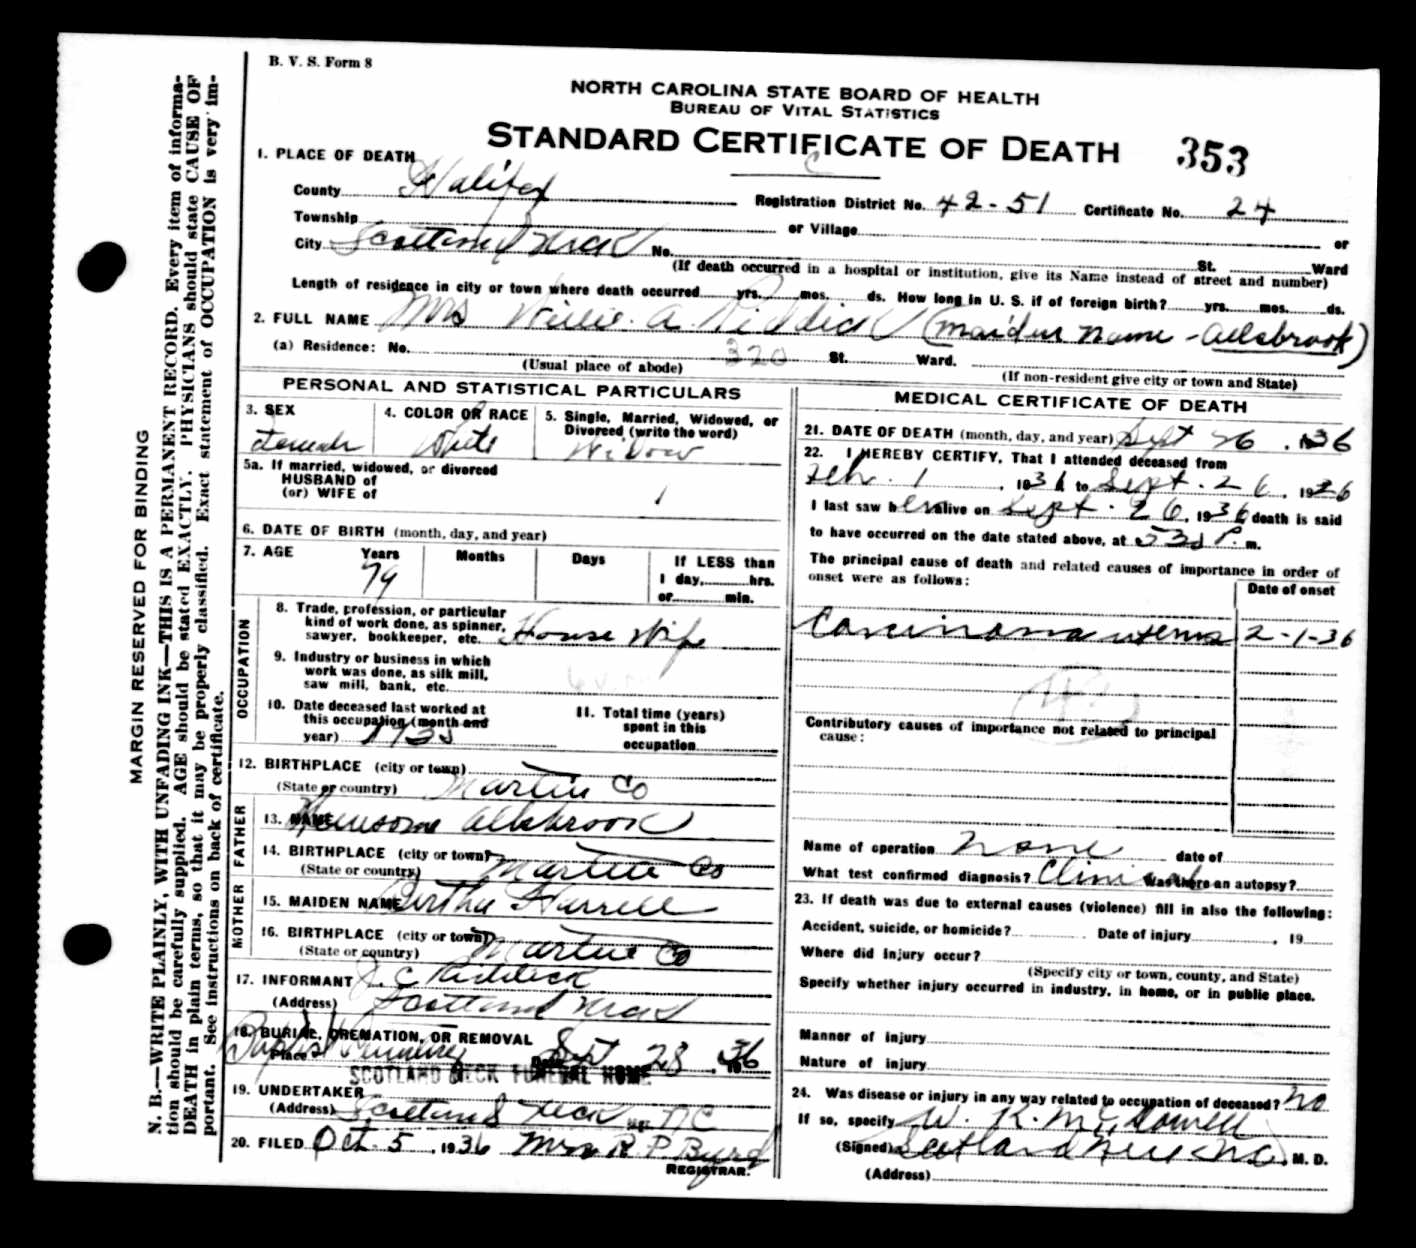 B. V. S. Form 8
NORTH CAROLINA STATE BOARD OF HEALTH
BUREAU OF VITAL STATISTICS
STANDARD CERTIFICATE OF DEATH 353
1. PLACE OF DEATH
County Halifax Registration District No. 42-51 Certificate No. 24
Township or Village or
City Scotland Neck No. St. Ward
(If death occurred in a hospital or institution, give its Name instead of street and number)
Length of residence in city or town where death occurred yrs. mos. ds. How long in U. S. if of foreign birth? yrs. mos. ds.
2. FULL NAME Mrs Willie A. Riddick (maiden name - Allsbrook)
(a) Residence: No. 320 St. Ward.
(Usual place of abode) (If non-resident give city or town and State)
PERSONAL AND STATISTICAL PARTICULARS
3. SEX 4. COLOR OR RACE 5. Single, Married, Widowed, or
Divorced (write the word)
Female White Widow
5a. If married, widowed, or divorced
HUSBAND of
(or) WIFE of
6. DATE OF BIRTH (month, day, and year)
7. AGE Years Months Days If LESS than
79 1 day, hrs.
or min.
OCCUPATION
8. Trade, profession, or particular
kind of work done, as spinner,
sawyer, bookkeeper, etc. House Wife
9. Industry or business in which
work was done, as silk mill,
saw mill, bank, etc.
10. Date deceased last worked at
this occupation (month and
year) 1935
11. Total time (years)
spent in this
occupation
12. BIRTHPLACE (city or town)
(State or country) Martin Co
FATHER
13. NAME Allsbrook
14. BIRTHPLACE (city or town)
(State or country) Martin Co
MOTHER
15. MAIDEN NAME Bertha Harrell
16. BIRTHPLACE (city or town)
(State or country) Martin Co
17. INFORMANT J. C. Riddick
(Address) Scotland Neck
18. BURIAL, CREMATION, OR REMOVAL
Place Baptist Cemetery Date Sept 28, 1936
SCOTLAND NECK FUNERAL HOME
19. UNDERTAKER
(Address) Scotland Neck NC
20. FILED Oct. 5, 1936 Mrs R. P. Byrd
REGISTRAR.
MEDICAL CERTIFICATE OF DEATH
21. DATE OF DEATH (month, day, and year) Sept 26, 1936
22. I HEREBY CERTIFY, That I attended deceased from
Feb. 1, 1936 to Sept. 26, 1936
I last saw h er alive on Sept. 26, 1936 death is said
to have occurred on the date stated above, at 530 P. m.
The principal cause of death and related causes of importance in order of
onset were as follows:
Date of onset
Carcinoma uterus 2-1-36
Contributory causes of importance not related to principal
cause:
Name of operation None date of
What test confirmed diagnosis? Clinical Was there an autopsy?
23. If death was due to external causes (violence) fill in also the following:
Accident, suicide, or homicide? Date of injury , 19
Where did injury occur?
(Specify city or town, county, and State)
Specify whether injury occurred in industry, in home, or in public place.
Manner of injury
Nature of injury
24. Was disease or injury in any way related to occupation of deceased? No
If so, specify
(Signed) W. K. McDowell M. D.
(Address) Scotland Neck N.C.
MARGIN RESERVED FOR BINDING
N. B.—WRITE PLAINLY, WITH UNFADING INK—THIS IS A PERMANENT RECORD. Every item of informa-
tion should be carefully supplied. AGE should be stated EXACTLY. PHYSICIANS should state CAUSE OF
DEATH in plain terms, so that it may be properly classified. Exact statement of OCCUPATION is very im-
portant. See instructions on back of certificate.